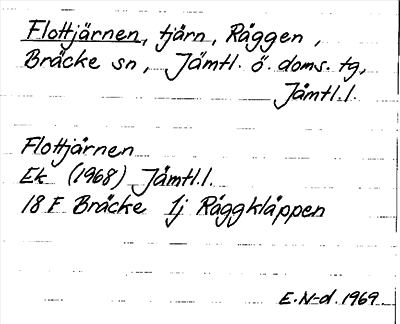 Flottjärnen, tjärn, Råggen,
Bräcke sn, Jämtl. ö. doms. tg,
Jämtl.l.
Flottjärnen
Ek (1968) Jämtl.l.
18 F Bräcke 1j Råggkläppen
E.N-d. 1969